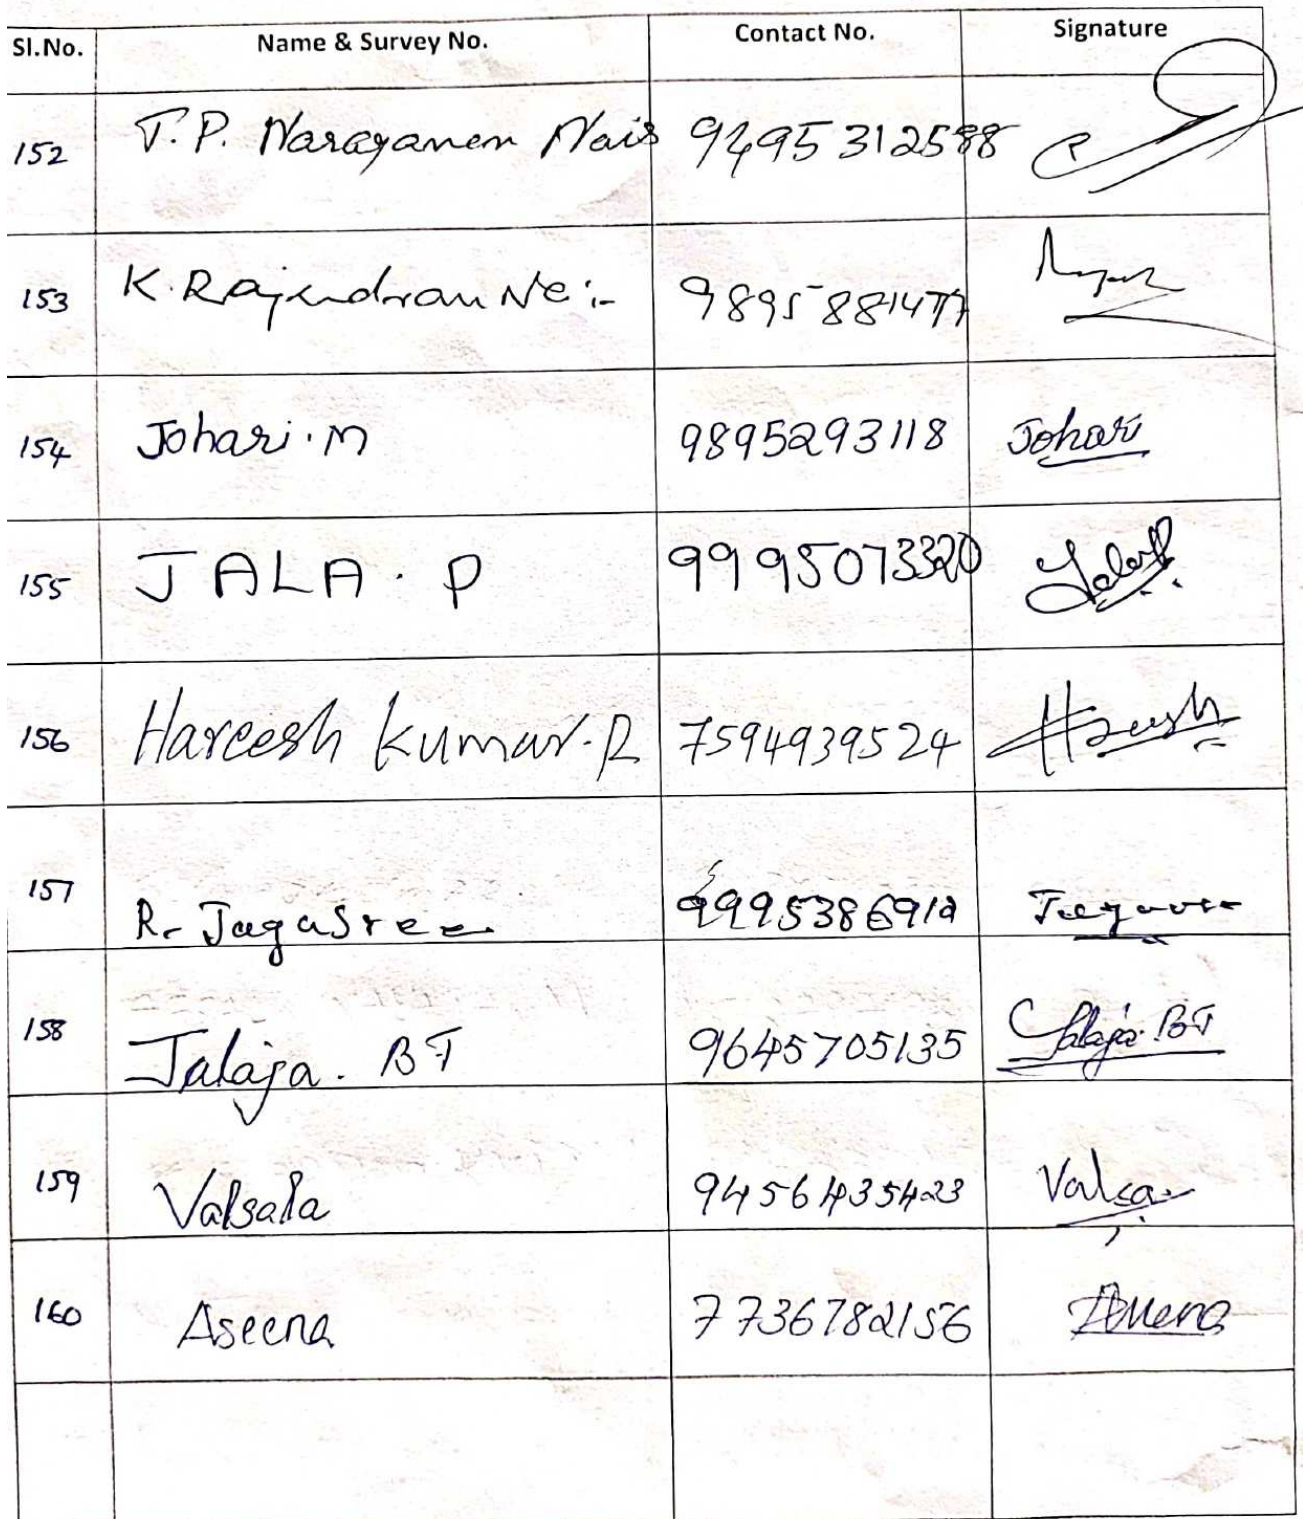 Sl.No. Name & Survey No. Contact No. Signature
152 T.P. Narayanan Nair 9495312588
153 K. Rajendran 9895881477
154 Johari.M 9895293118 Johari
155 JALA. P 9995073320 Jala P
156 Hareesh Kumar.R 7594939524 Hareesh
157 R. Jayasree 9995386912
158 Jalaja. BT 9645705135 Jalaja. BT
159 Valsala 9456435423 Valsa
160 Aseena 7736782156